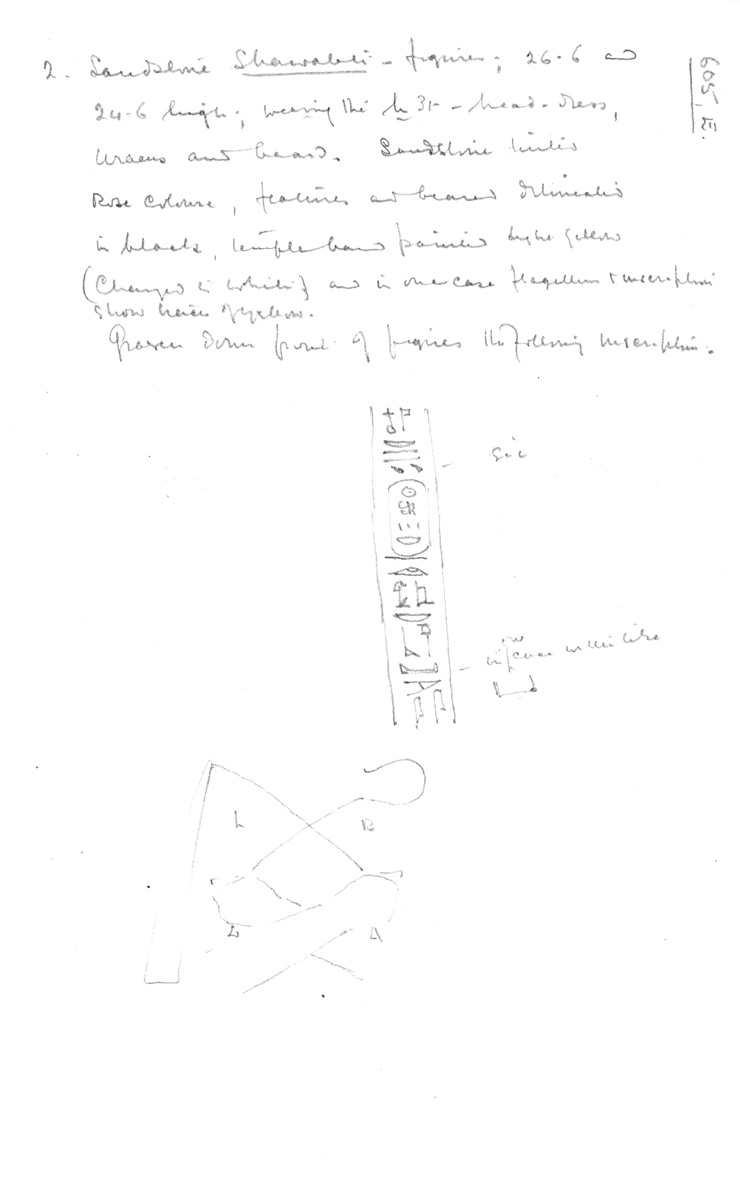 605, E.
2. Sandstone Shawabti - figures; 26·6 and
24·6 high; wearing the ḫ3t - head-dress,
Uraeus and beard. Sandstone tinted
Rose colour, features and beard delineated
in black, temple band painted light yellow
(changed to white) and in one case flagellum + inscription
show traces of yellow.
Graven down front of figures the following inscription.
sic
in one case written like
L R
L R